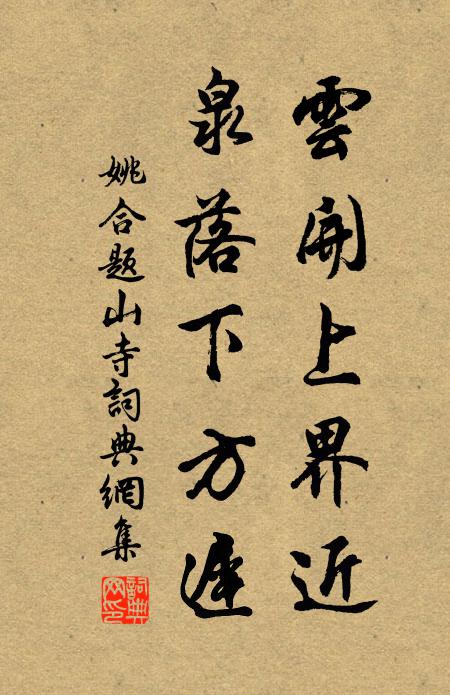 雲開上界近
泉落下方遲
姚合題山寺詞典網集
詞典網印